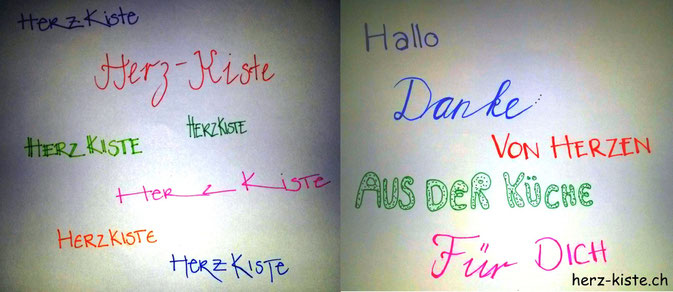 Herz Kiste
Herz-Kiste
HERZKISTE
HERZ KISTE
HERZ KISTE
HERZKISTE
HERZ KISTE
Hallo
Danke
VON HERZEN
AUS DER KÜCHE
Für DICH
herz-kiste.ch